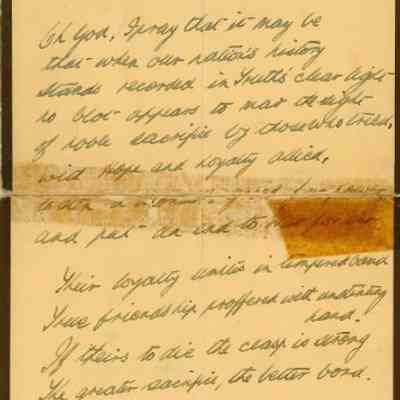 Oh God, I pray that it may be
that when our nation's history
stands recorded in Truth's clear light
no blot appears to mar the sight
of noble sacrifice by those who tried,
with Hope and Loyalty allied,
to
and put an end to
Their loyalty unites in tempered band
True friendship proffered with unstinting
hand.
If theirs to die the clasp is strong
The greater sacrifice, the better bond.